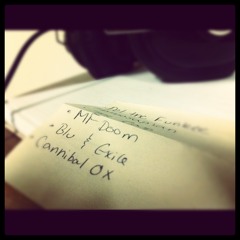 • MF Doom
• Blu & Exile
Cannibal Ox